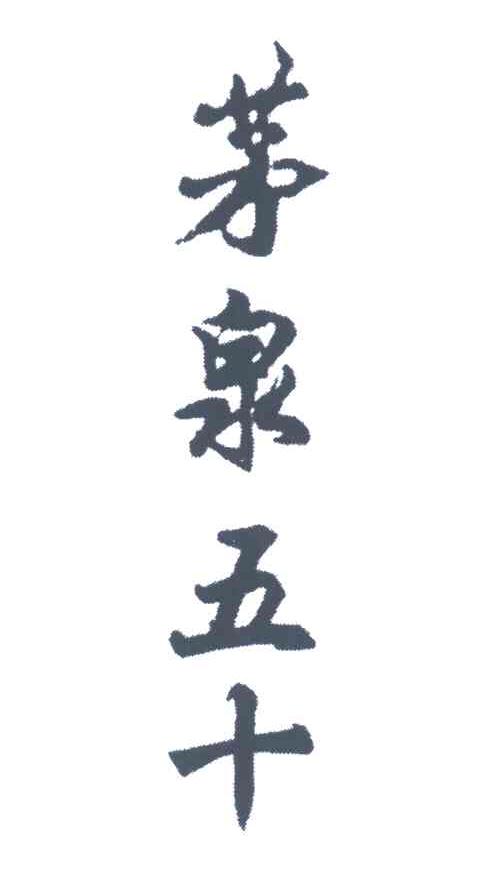 茅泉五十